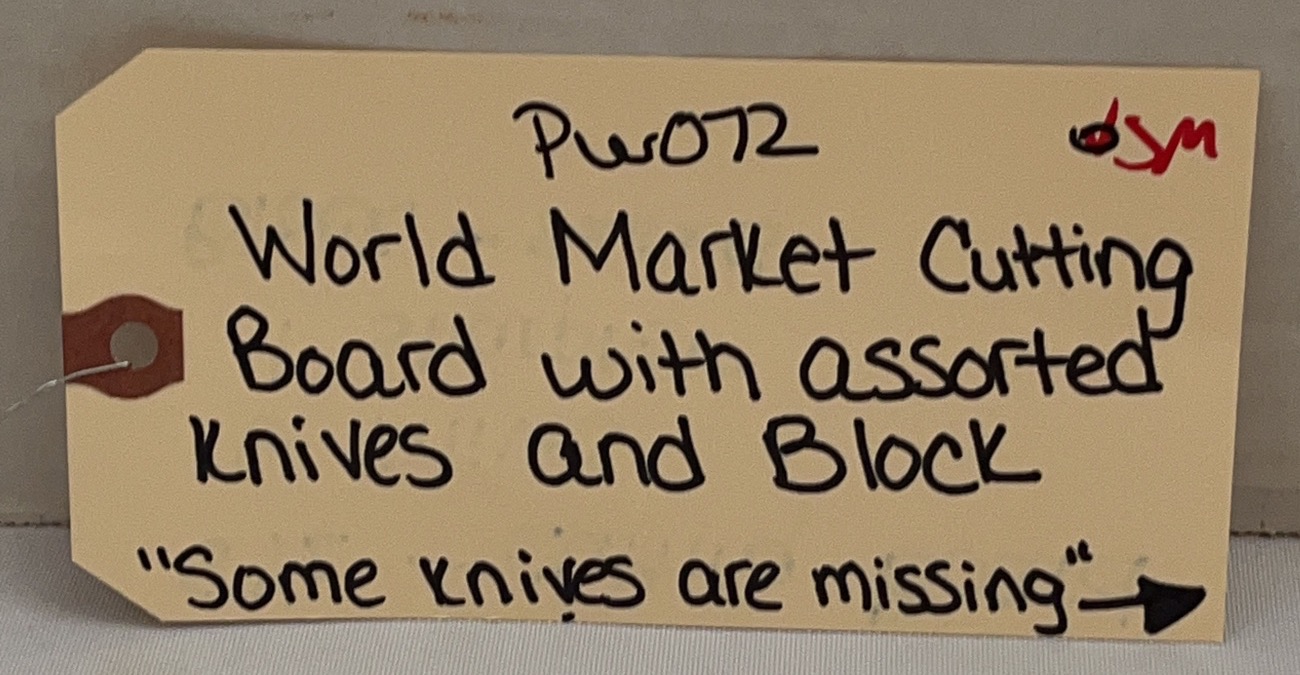 Pwr072
dSM
World Market Cutting
Board with assorted
Knives and Block
"Some knives are missing"